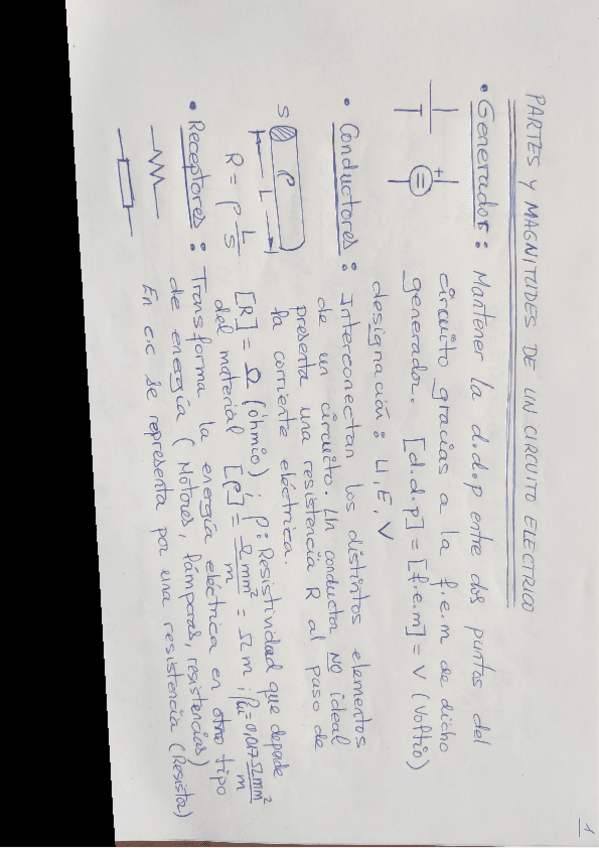 1
PARTES Y MAGNITUDES DE UN CIRCUITO ELECTRICO
• Generador: Mantener la d.d.p entre dos puntos del
circuito gracias a la f.e.m de dicho
generador. [d.d.p] = [f.e.m] = V (Voltio)
designación: U, E, V
+
• Conductores: Interconectan los distintos elementos
de un circuito. Un conductor NO ideal
presenta una resistencia R al paso de
la corriente eléctrica.
S ρ L
R = ρ L/S
[R] = Ω (óhmio); ρ: Resistividad que depende
del material [ρ] = Ω mm²/m = Ω m; ρcu = 0,017 Ω mm²/m
• Receptores: Transforma la energía eléctrica en otro tipo
de energía (Motores, lámparas, resistencias)
En c.c se representa por una resistencia (Resistor)